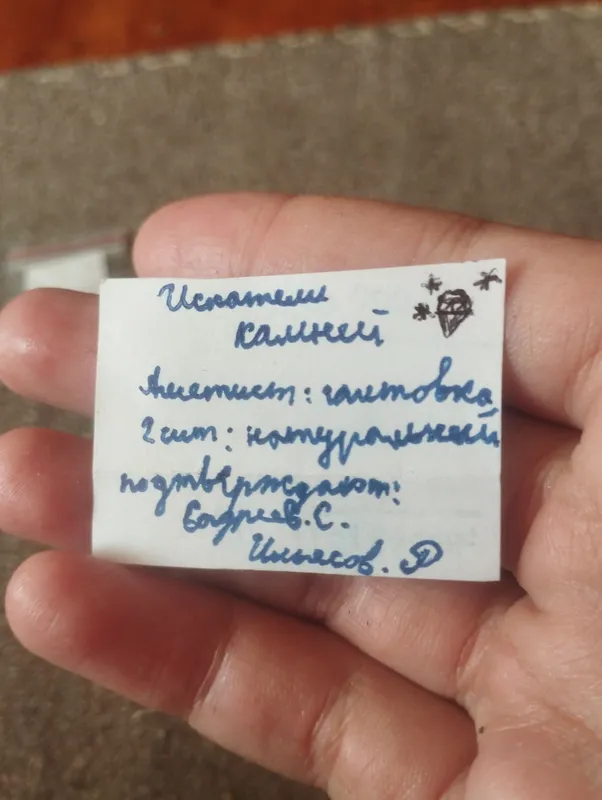 Искатели
камней
Аметист: галтовка
2 сит: натуральный
подтверждают:
С.
Ильясов. Р